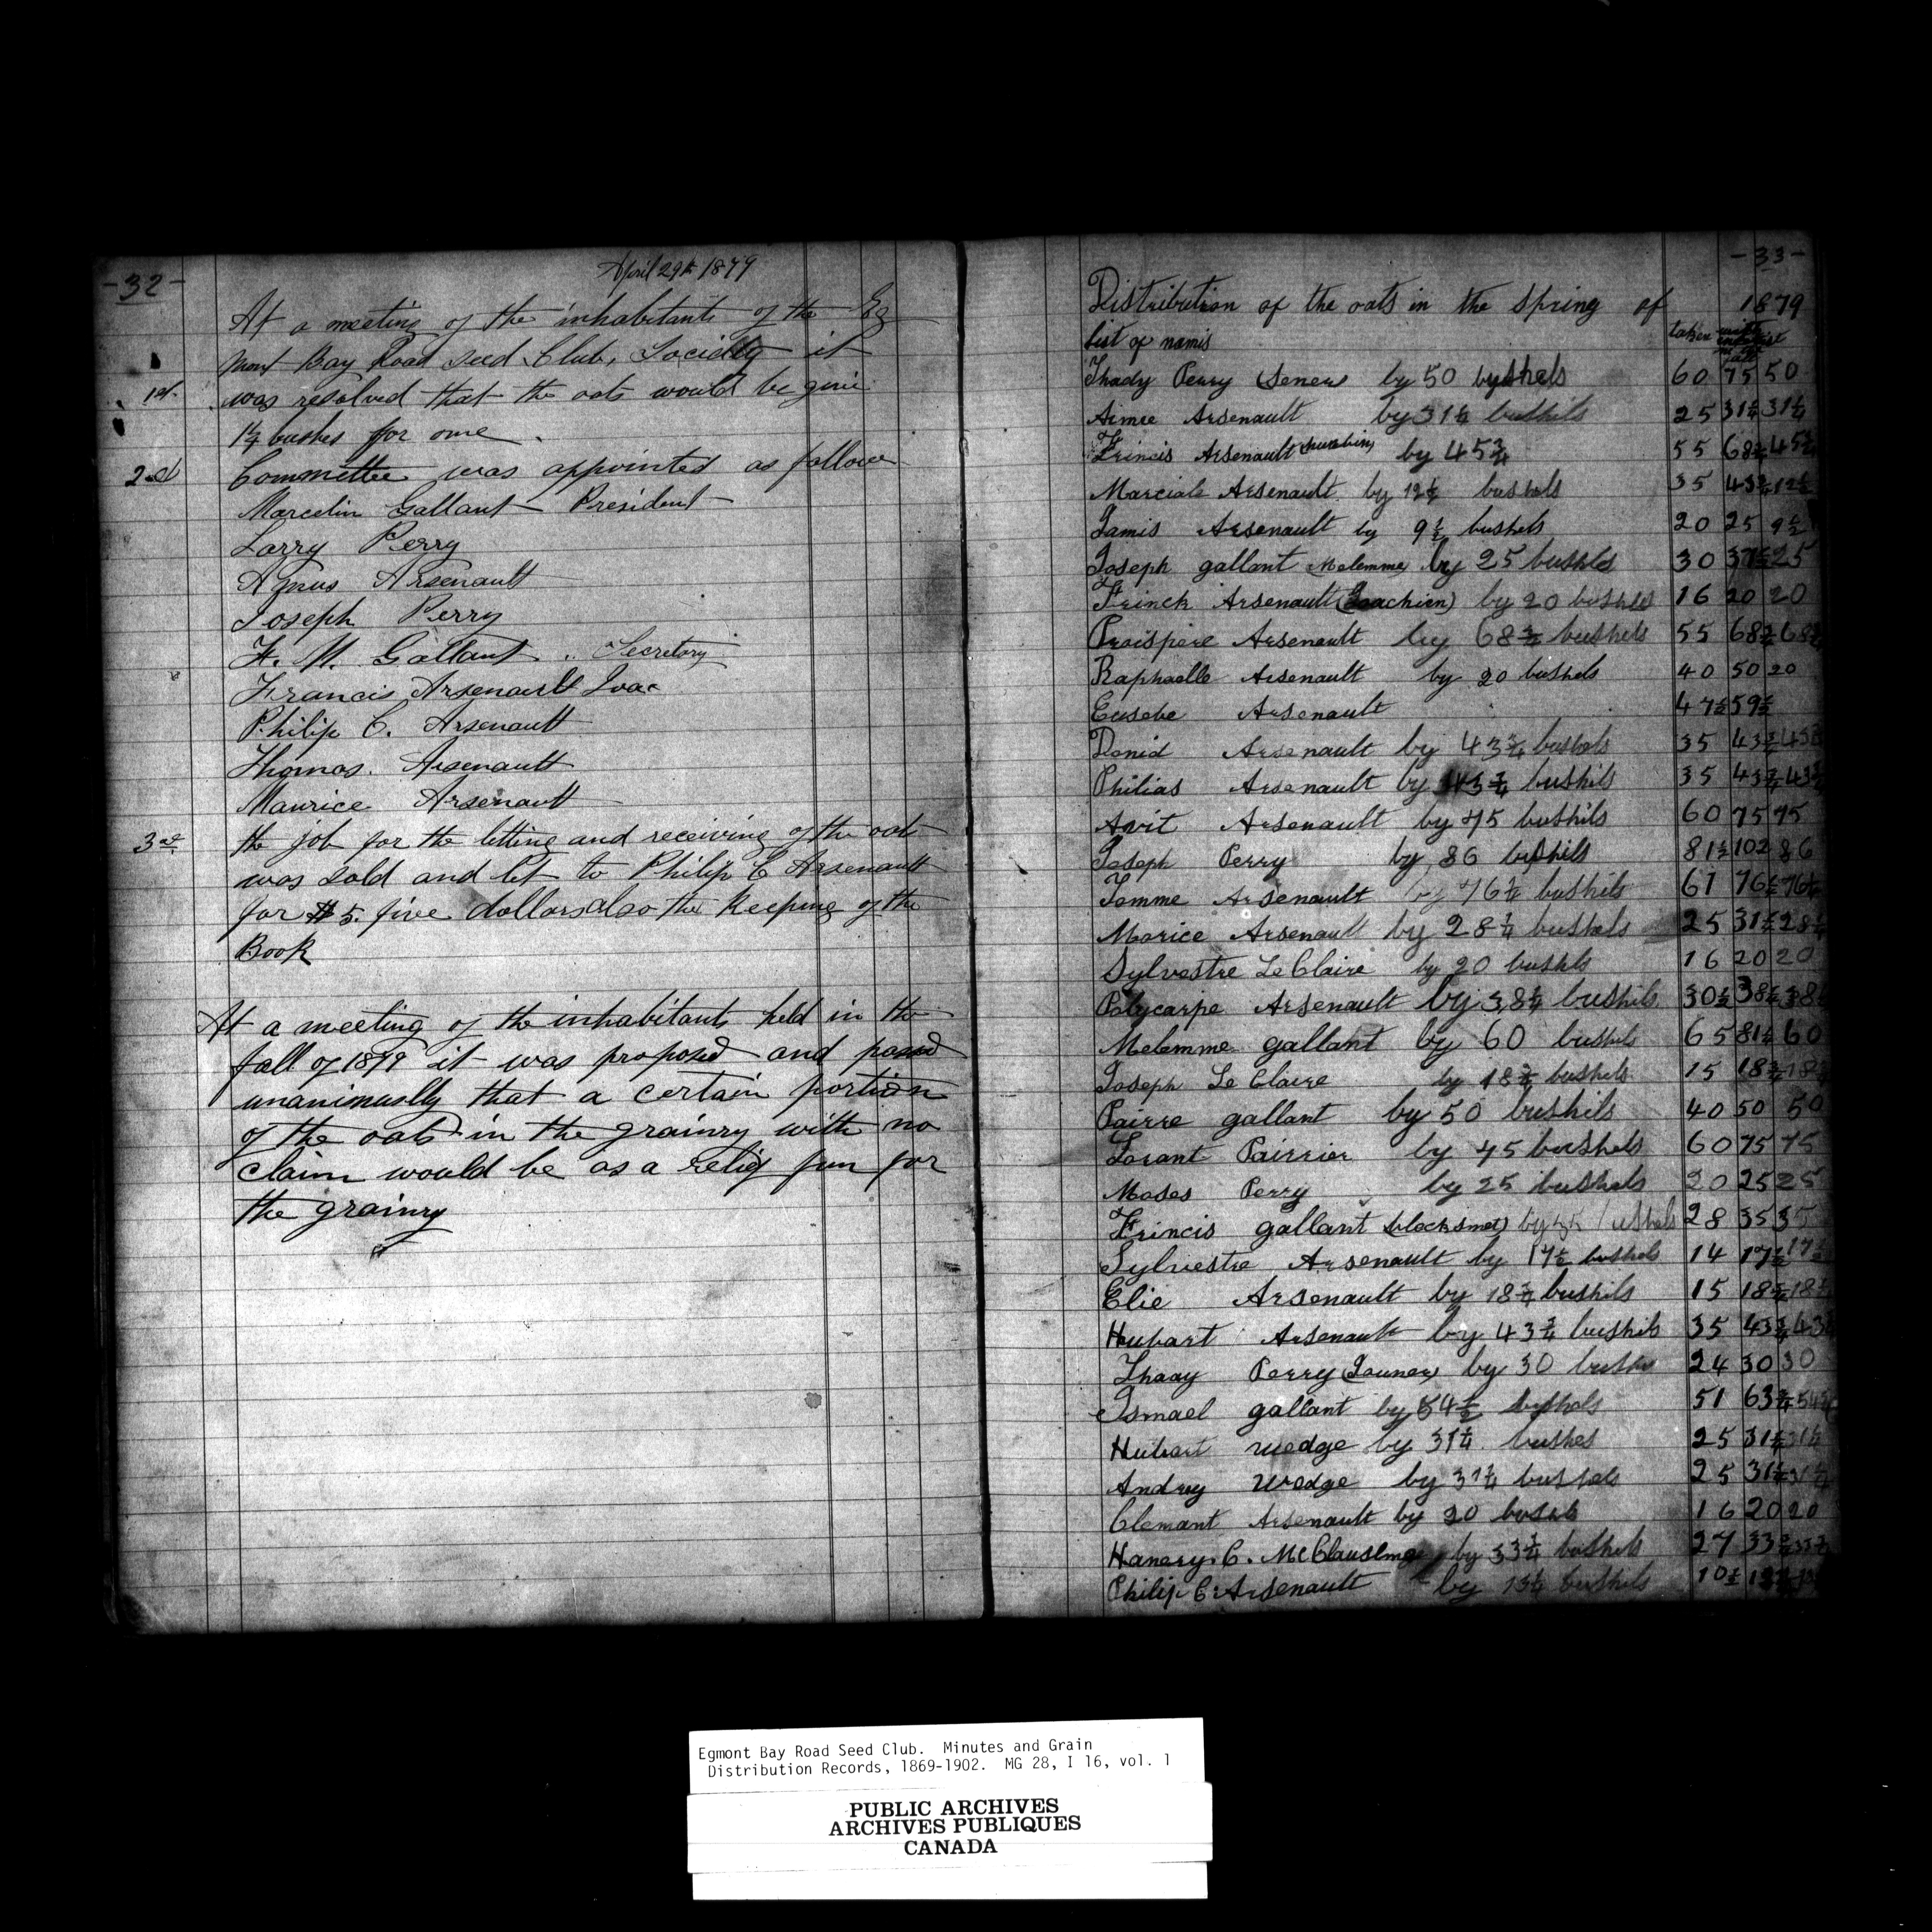 -32-
April 29th 1879
At a meeting of the inhabitants of the Eg
mont Bay Road Seed Club, Society it
1st. was resolved that the oats would be give
1¼ bushes for one.
2nd Committee was appointed as follow
Marcelin Gallant — President
Larry Perry
Agnus Arsenault
Joseph Perry
F. M. Gallant .. Secretory
Francis Arsenault Joac
Philip C. Arsenault
Thomas. Arsenault
Maurice Arsenault
3rd. the job for the letting and receiving of the oats
was sold and let to Philip C Arsenault
for $5. five dollars also the Keeping of the
Book
At a meeting of the inhabitants held in the
fall of 1879 it was proposed and passed
unanimuslly that a certain portion
of the oats in the grainry with no
claim would be as a relief fun for
the grainry
-33-
Distribution of the oats in the Spring of 1879
list of namis taken with
Thady Perry (Sener) by 50 byshels 60 75 50
Aimee Arsenault by 31¼ bushils 25 31¼ 31¼
Frincis Arsenault by 45¾ 55 68¾ 45¾
Marciale Arsenault by 12½ bushels 35 43¾ 12½
Jamis Arsenault by 9½ bushels 20 25 9½
Joseph gallant (Melemme) by 25 bushels 30 37½ 25
Frinck Arsenault (Joachien) by 20 bushels 16 20 20
Praispere Arsenault by 68¾ bushels 55 68¾ 68¾
Raphaelle Arsenault by 20 bushels 40 50 20
Eusebe Arsenault 47½ 59½
Donid Arsenault by 43¾ bushels 35 43¾ 43¾
Philias Arsenault by 43¾ bushils 35 43¾ 43¾
Avit Arsenault by 75 bushils 60 75 75
Joseph Perry by 86 bushils 81½ 102 86
Tomme Arsenault by 76¼ bushils 61 76¼ 76¼
Morice Arsenault by 28¼ bushels 25 31¼ 28¼
Sylvestre Le Claire by 20 bushls 16 20 20
Polycarpe Arsenault by 38¼ bushils 30½ 38¼ 38¼
Melemme gallant by 60 bushils 65 81¼ 60
Joseph Le Claire by 18¾ bushels 15 18¾ 18¾
Pairre gallant by 50 bushils 40 50 50
Lorant Pairrier by 75 bushels 60 75 75
Moses Perry by 25 bushels 20 25 25
Frincis gallant (blacksmet) by 35 bushels 28 35 35
Sylvestre Arsenault by 17½ bushels 14 17½ 17½
Elie Arsenault by 18¾ bushils 15 18¾ 18¾
Hubart Arsenault by 43¾ bushils 35 43¾ 43¾
Thaay Perry (Jouner) by 30 bushe 24 30 30
Ismael gallant by 54½ byshels 51 63¾ 54½
Hubart Wedge by 31¼ bushes 25 31¼ 31¼
Andrey Wedge by 31¼ bushels 25 31¼ 31¼
Clemant Arsenault by 20 bushels 16 20 20
Hanery. C. by 33¾ bushels 27 33¾ 33¾
Philip C Arsenault by 13¼ bushels 10½
Egmont Bay Road Seed Club. Minutes and Grain
Distribution Records, 1869-1902. MG 28, I 16, vol. 1
PUBLIC ARCHIVES
ARCHIVES PUBLIQUES
CANADA